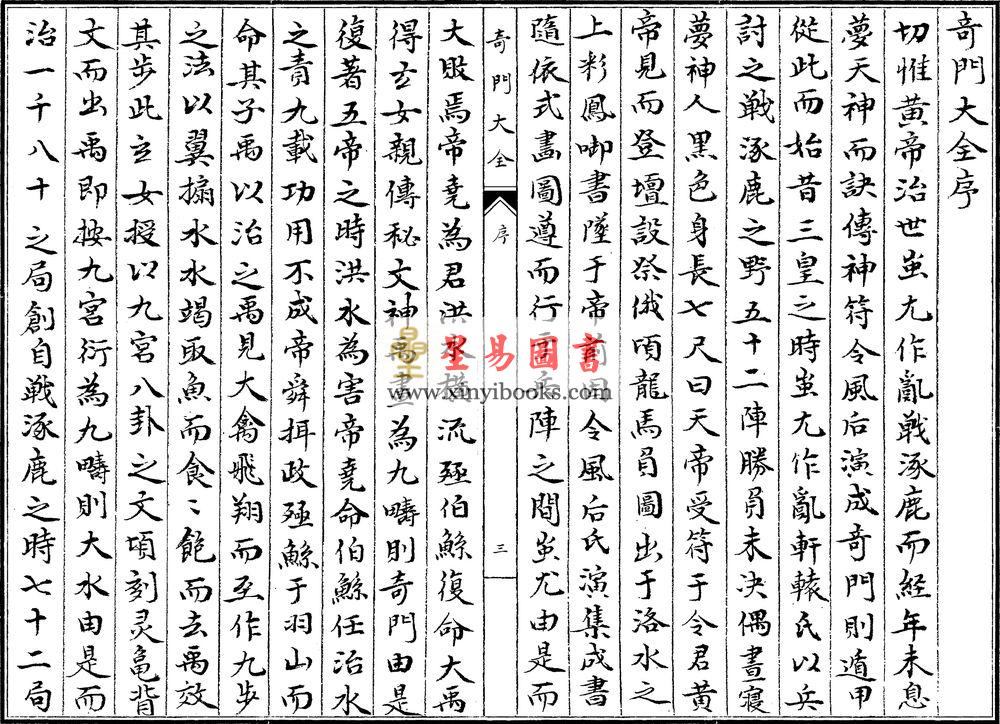 奇門大全序
切惟黃帝治世蚩尤作亂戰涿鹿而經年未息
夢天神而訣傳神符令風后演成奇門則遁甲
從此而始昔三皇之時蚩尤作亂軒轅氏以兵
討之戰涿鹿之野五十二陣勝負未决偶晝寝
夢神人黑色身長七尺曰天帝受符于令君黃
帝見而登壇設祭俄頃龍馬負圖出于洛水之
上彩鳳啣書墜于帝前因令風后氏演集成書
隨依式畵圖遵而行兵陣之間蚩尤由是而
奇門大全 序 三
大敗焉帝堯為君洪水橫流殛伯鯀復命大禹
得玄女親傳秘文神禹畫為九疇則奇門由是
復著五帝之時洪水為害帝堯命伯鯀任治水
之責九載功用不成帝舜揖政殛鯀于羽山而
命其子禹以治之禹見大禽飛翔而至作九步
之法以翼搧水水竭取魚而食〻飽而去禹效
其步此玄女授以九宮八卦之文頃刻灵龜背
文而出禹即按九宮衍為九疇則大水由是而
治一千八十之局創自戰涿鹿之時七十二局
聖易圖書
www.xinyibooks.com